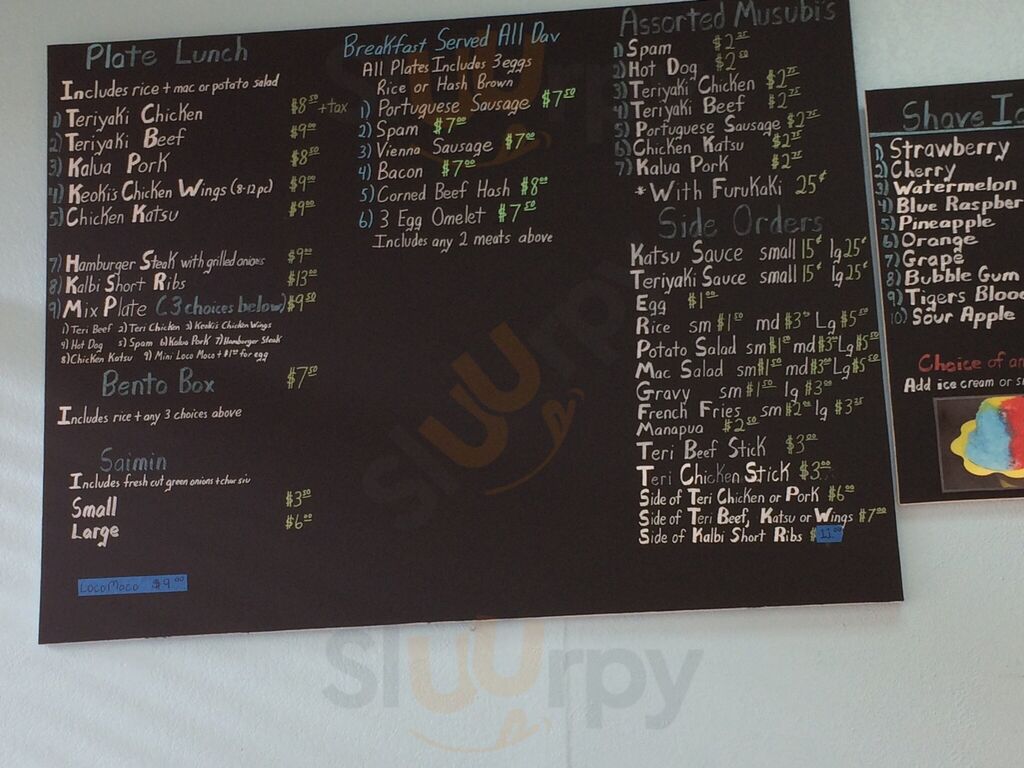 Plate Lunch
Includes rice + mac or potato salad
1) Teriyaki Chicken $8.50 + tax
2) Teriyaki Beef $9.00
3) Kalua Pork $8.50
4) Keoki's Chicken Wings (8-12 pc) $9.00
5) Chicken Katsu $9.00
7) Hamburger Steak with grilled onions $9.00
8) Kalbi Short Ribs $13.00
9) Mix Plate (3 choices below) $9.50
1) Teri Beef 2) Teri Chicken 3) Keoki's Chicken Wings
4) Hot Dog 5) Spam 6) Kalua Pork 7) Hamburger Steak
8) Chicken Katsu 9) Mini Loco Moco + $1.00 for egg
Bento Box $7.50
Includes rice + any 3 choices above
Saimin
Includes fresh cut green onions + char siu
Small $3.50
Large $6.00
Loco Moco $9.00
Breakfast Served All Day
All Plates Includes 3 eggs
Rice or Hash Brown
1) Portuguese Sausage $7.50
2) Spam $7.00
3) Vienna Sausage $7.00
4) Bacon $7.00
5) Corned Beef Hash $8.00
6) 3 Egg Omelet $7.50
Includes any 2 meats above
Assorted Musubi's
1) Spam $2.25
2) Hot Dog $2.50
3) Teriyaki Chicken $2.75
4) Teriyaki Beef $2.75
5) Portuguese Sausage $2.75
6) Chicken Katsu $2.75
7) Kalua Pork $2.75
*With Furukaki 25¢
Side Orders
Katsu Sauce small 15¢ lg 25¢
Teriyaki Sauce small 15¢ lg 25¢
Egg $1.00
Rice sm $1.50 md $3.00 Lg $5.50
Potato Salad sm $1.50 md $3.00 Lg $5.50
Mac Salad sm $1.50 md $3.00 Lg $5.50
Gravy sm $1.50 lg $3.00
French Fries sm $2.00 lg $3.75
Manapua $2.50
Teri Beef Stick $3.00
Teri Chicken Stick $3.00
Side of Teri Chicken or Pork $6.00
Side of Teri Beef, Katsu or Wings $7.00
Side of Kalbi Short Ribs $11.00
Shave Ic
1) Strawberry
2) Cherry
3) Watermelon
4) Blue Raspber
5) Pineapple
6) Orange
7) Grape
8) Bubble Gum
9) Tigers Bloo
10) Sour Apple
Choice of an
Add ice cream or s
Sluurpy
Sluurpy